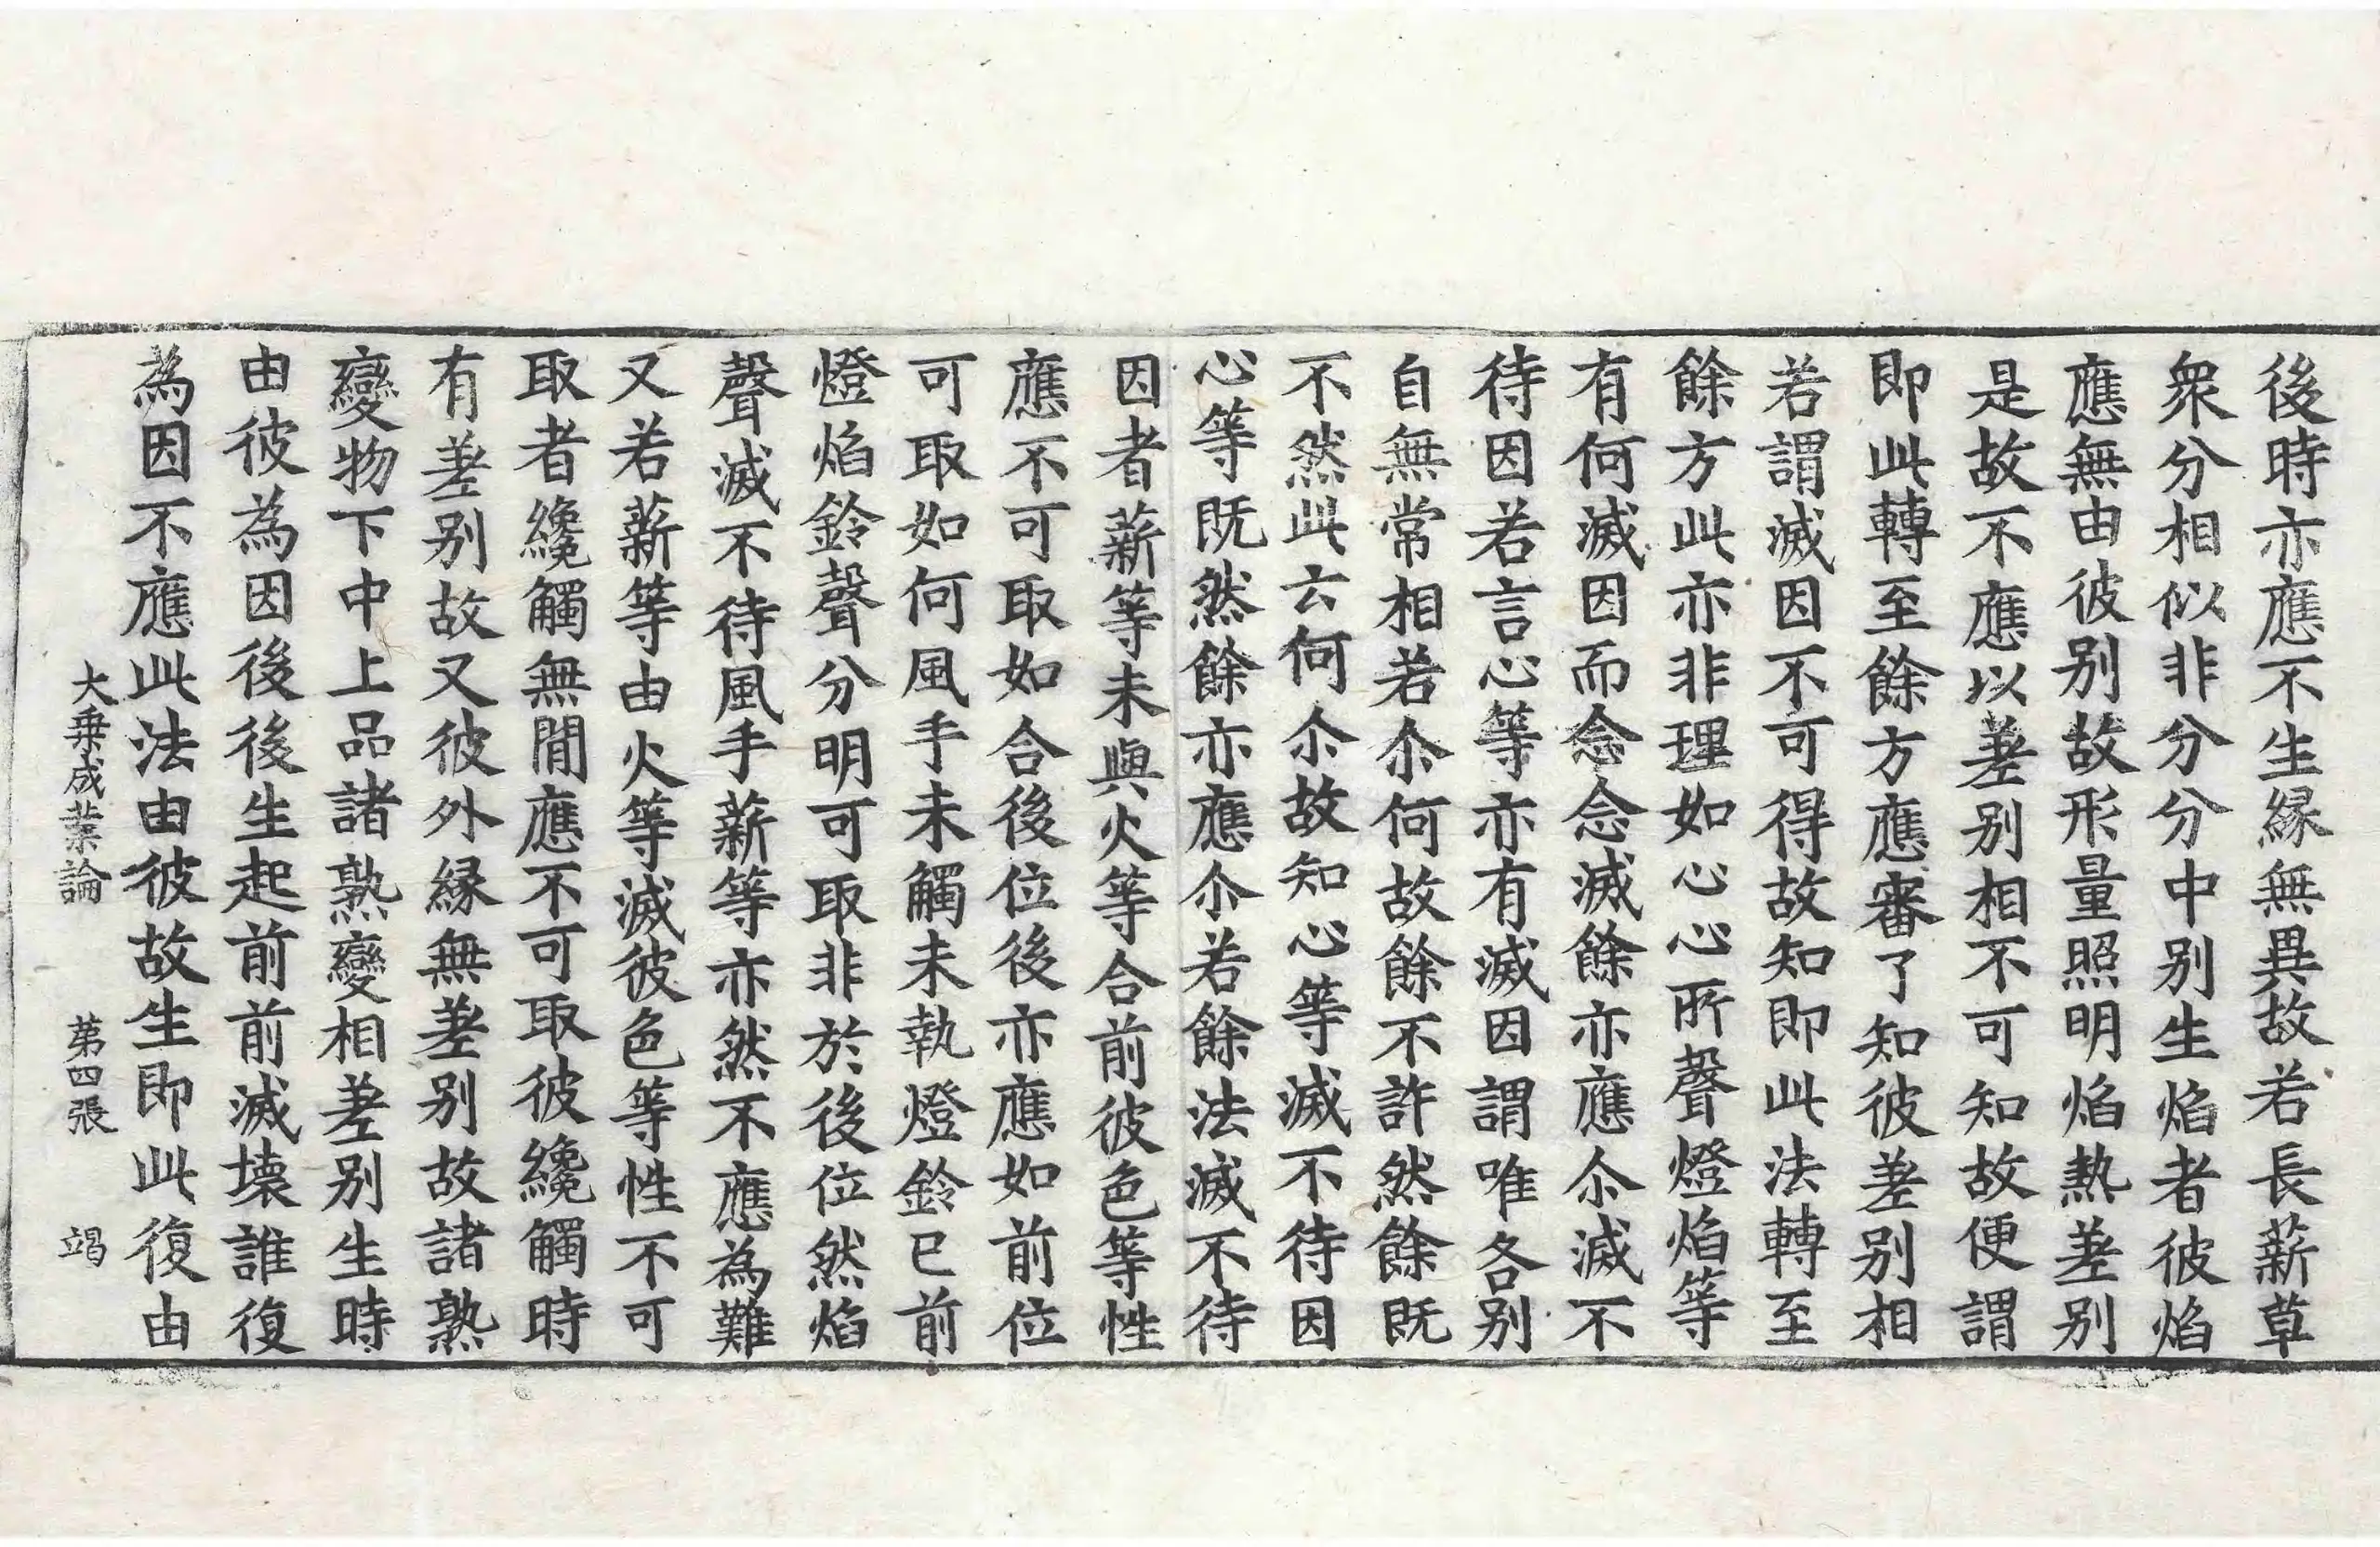 後時亦應不生緣無異故若長薪草
衆分相似非分分中別生焰者彼焰
應無由彼別故形量照明焰熱差別
是故不應以差別相不可知故便謂
即此轉至餘方應審了知彼差別相
若謂滅因不可得故知即此法轉至
餘方此亦非理如心心所聲燈焰等
有何滅因而念念滅餘亦應尒滅不
待因若言心等亦有滅因謂唯各別
自無常相若尒何故餘不許然餘既
不然此云何尒故知心等滅不待因
心等既然餘亦應尒若餘法滅不待
因者薪等未與火等合前彼色等性
應不可取如合後位後亦應如前位
可取如何風手未觸未執燈鈴已前
燈焰鈴聲分明可取非於後位然焰
聲滅不待風手薪等亦然不應為難
又若薪等由火等滅彼色等性不可
取者纔觸無間應不可取彼纔觸時
有差別故又彼外緣無差別故諸熟
變物下中上品諸熟變相差別生時
由彼為因後後生起前前滅壞誰復
為因不應此法由彼故生即此復由
大乗成業論 第四張 竭